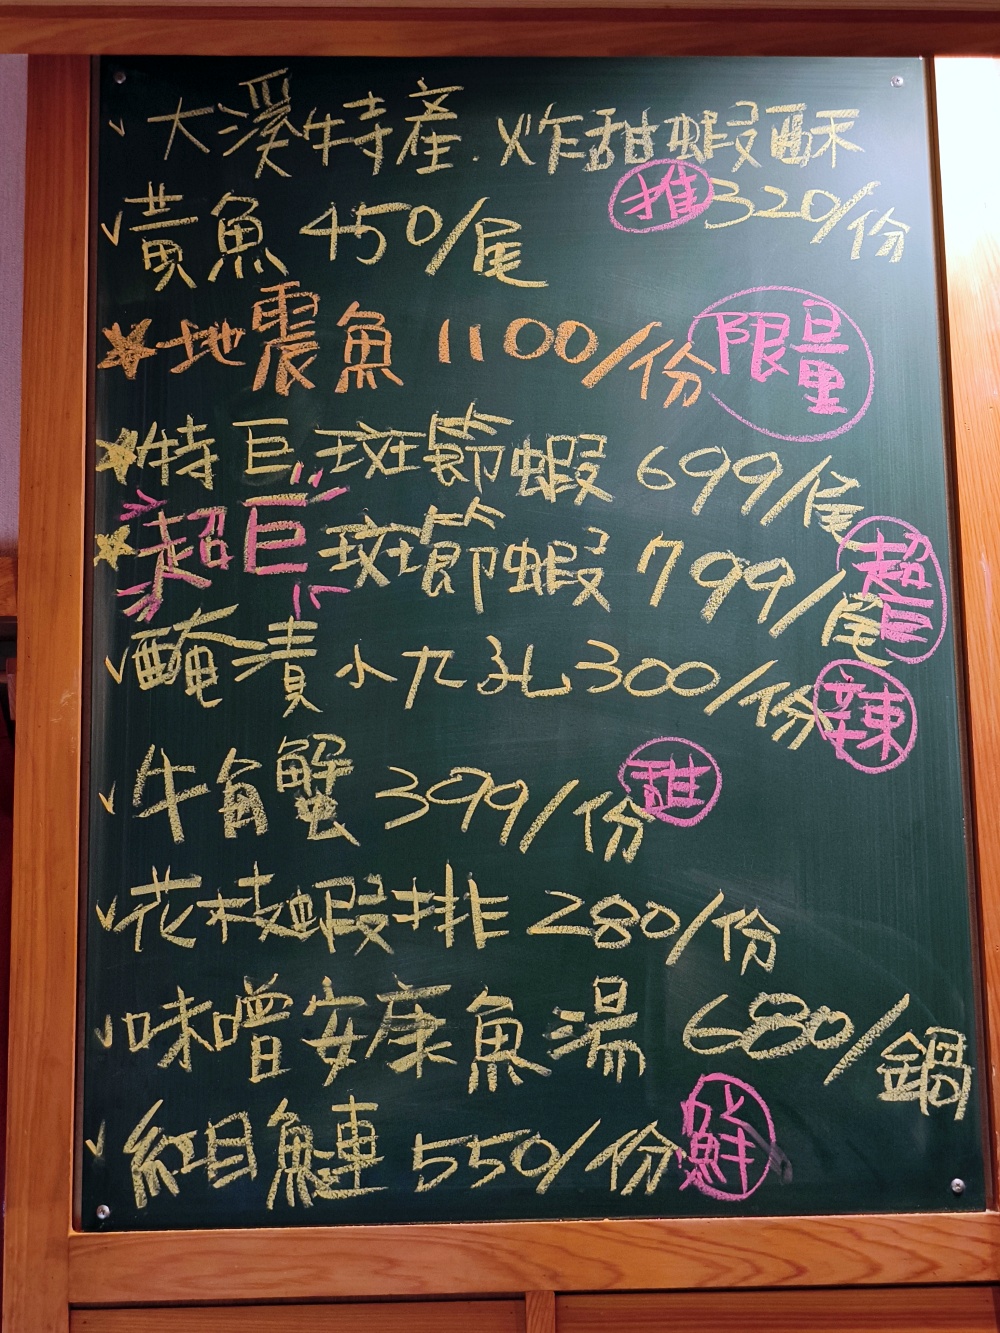 大溪特產.炸甜蝦酥
推 320/份
黃魚 450/尾
地震魚 1100/份 限量
特巨斑節蝦 699/尾
超巨斑節蝦 799/尾 超巨
醃漬小九孔300/份 辣
牛角蟹 399/份 甜
花枝蝦排 280/份
味噌安康魚湯 680/鍋
紅目鰱 550/份 鮮